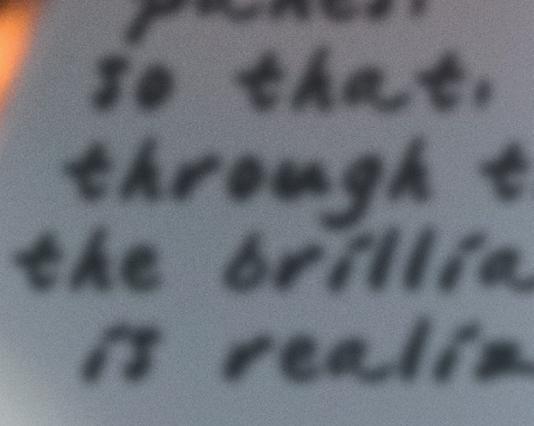 so that,
through t
the brillia
is realiz